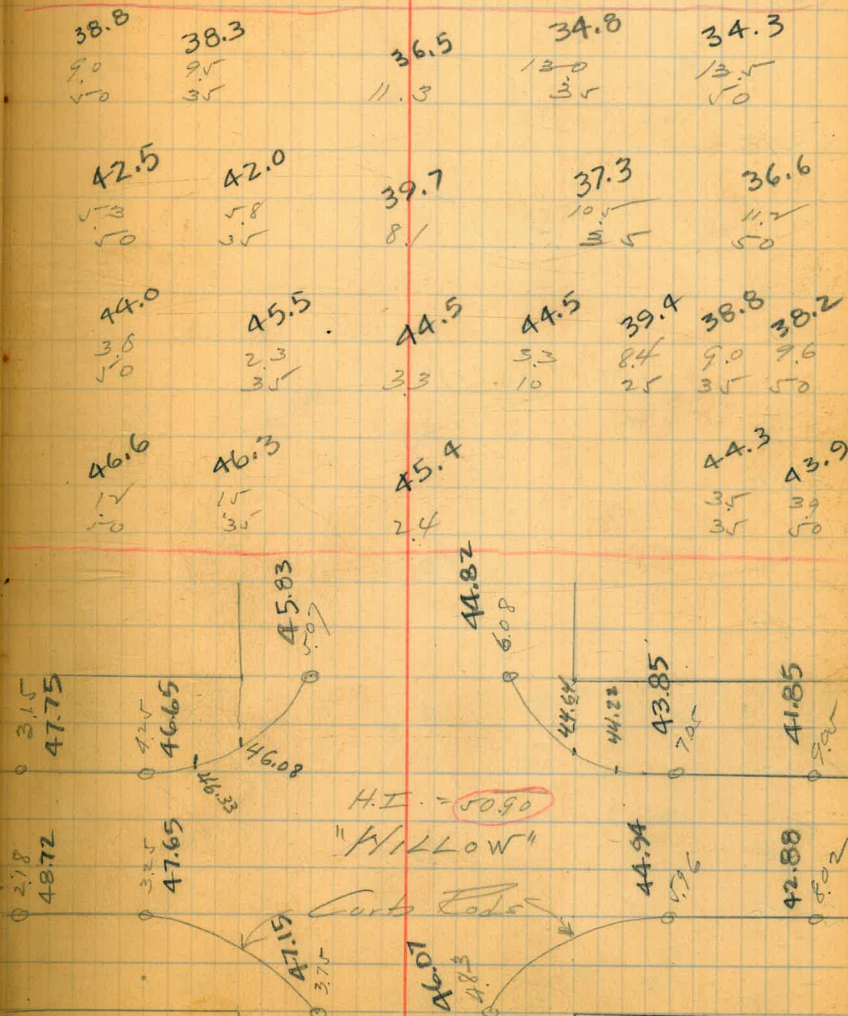 38.8 38.3 36.5 34.8 34.3
9.0 9.5 11.3 13.0 13.5
50 35 35 50
42.5 42.0 39.7 37.3 36.6
5.3 5.8 8.1 10.5 11.2
50 35 35 50
44.0 45.5 44.5 44.5 39.4 38.8 38.2
3.8 2.3 3.3 3.3 8.4 9.0 9.6
50 35 10 25 35 50
46.6 46.3 45.4 44.3 43.9
1.2 1.5 2.4 3.5 3.9
50 35 35 50
45.83 44.82
5.07 6.08
3.15 4.25 7.05 9.05
47.75 46.65 44.64 44.22 43.85 41.85
46.33 46.08
H.I. = 50.90
"WILLOW"
2.18 3.25 5.96 8.02
48.72 47.65 44.94 42.88
Curb Rods
47.15 46.07
3.75 4.83